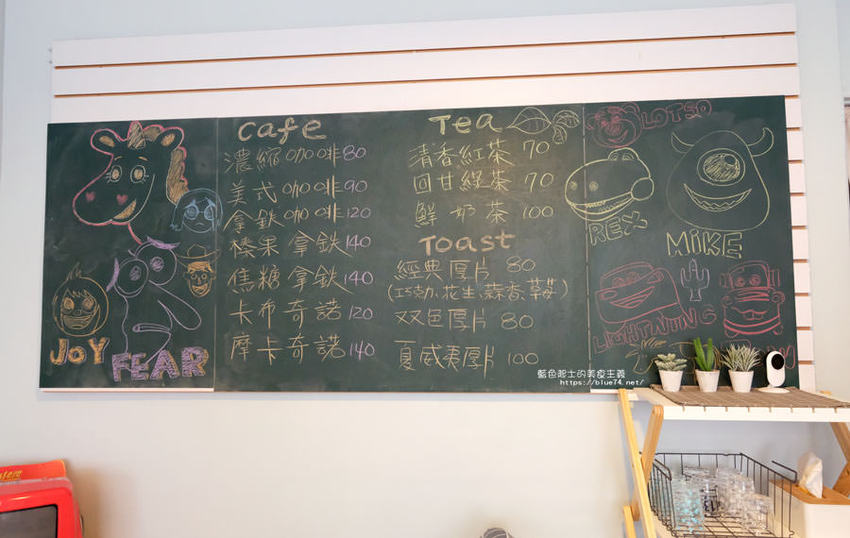 Cafe
濃縮咖啡80
美式咖啡90
拿鐵咖啡120
榛果拿鐵140
焦糖拿鐵140
卡布奇諾120
摩卡奇諾140
Tea
清香紅茶 70
回甘綠茶 70
鮮奶茶 100
Toast
經典厚片 80
(巧克力、花生、蒜香、草莓)
双色厚片 80
夏威夷厚片 100
JOY
FEAR
LOTSO
REX
MiKE
LIGHTNING
藍色起士的美食主義
https://blue74.net/